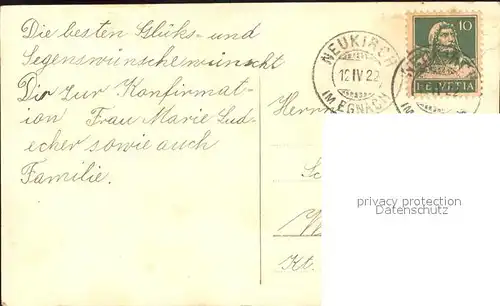 Die besten Glüks- und
Segenswünsche wünscht
Dir zur Konfirmat-
ion Frau Marie Lud-
echer sowie auch
Familie.
10
HELVETIA
NEUKIRCH
12 IV 22
IM EGNACH
Herrn
Kt.
privacy protection
Datenschutz